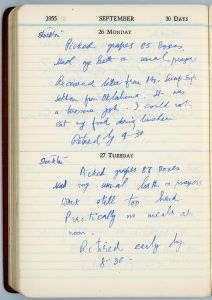 1955 SEPTEMBER 30 DAYS
26 MONDAY
Stockton
Picked grapes 85 boxes.
Had my bath & usual prayer
Received letter from Mr. Singh
from Oklahoma. It was
a tiresome job. I could not
eat my food during luncheon
Retired by 9-30
27 TUESDAY
Stockton
Picked grapes 87 boxes
Had my usual bath & prayers
Work still too hard.
Practically no meals at
noon.
Retired early by
8-30-